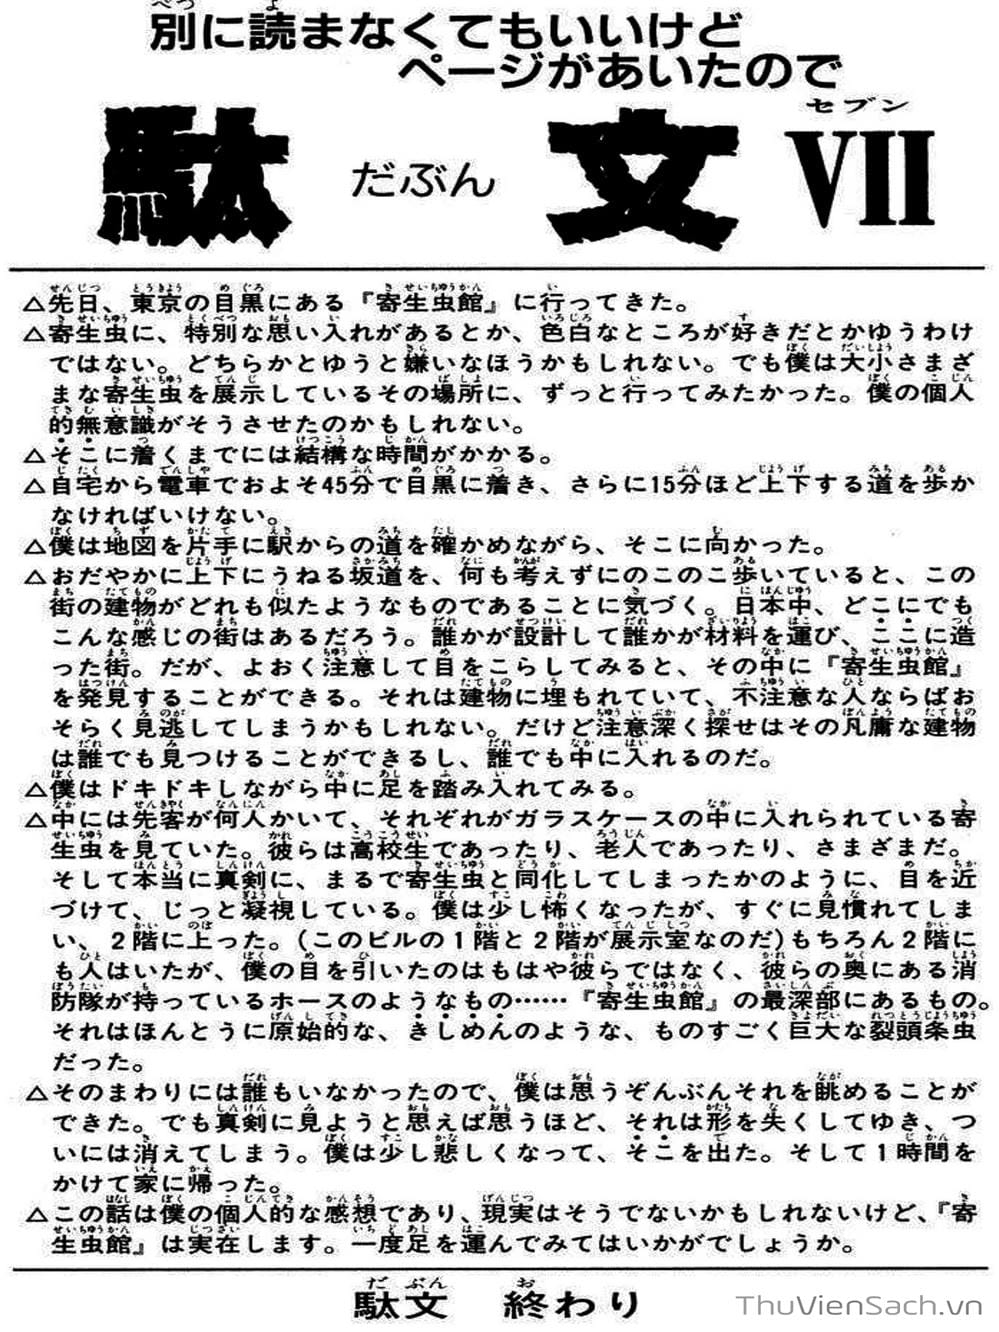 別に読まなくてもいいけど
ページがあいたので
駄文 だぶん VII セブン
△先日、東京の目黒にある『寄生虫館』に行ってきた。
△寄生虫に、特別な思い入れがあるとか、色白なところが好きだとかゆうわけ
ではない。どちらかとゆうと嫌いなほうかもしれない。でも僕は大小さまざ
まな寄生虫を展示しているその場所に、ずっと行ってみたかった。僕の個人
的無意識がそうさせたのかもしれない。
△そこに着くまでには結構な時間がかかる。
△自宅から電車でおよそ45分で目黒に着き、さらに15分ほど上下する道を歩か
なければいけない。
△僕は地図を片手に駅からの道を確かめながら、そこに向かった。
△おだやかに上下にうねる坂道を、何も考えずにのこのこ歩いていると、この
街の建物がどれも似たようなものであることに気づく。日本中、どこにでも
こんな感じの街はあるだろう。誰かが設計して誰かが材料を運び、ここに造
った街。だが、よおく注意して目をこらしてみると、その中に『寄生虫館』
を発見することができる。それは建物に埋もれていて、不注意な人ならばお
そらく見逃してしまうかもしれない。だけど注意深く探せはその凡庸な建物
は誰でも見つけることができるし、誰でも中に入れるのだ。
△僕はドキドキしながら中に足を踏み入れてみる。
△中には先客が何人かいて、それぞれがガラスケースの中に入れられている寄
生虫を見ていた。彼らは高校生であったり、老人であったり、さまざまだ。
そして本当に真剣に、まるで寄生虫と同化してしまったかのように、目を近
づけて、じっと凝視している。僕は少し怖くなったが、すぐに見慣れてしま
い、2階に上った。(このビルの1階と2階が展示室なのだ)もちろん2階に
も人はいたが、僕の目を引いたのはもはや彼らではなく、彼らの奥にある消
防隊が持っているホースのようなもの……『寄生虫館』の最深部にあるもの。
それはほんとうに原始的な、きしめんのような、ものすごく巨大な裂頭条虫
だった。
△そのまわりには誰もいなかったので、僕は思うぞんぶんそれを眺めることが
できた。でも真剣に見ようと思えば思うほど、それは形を失くしてゆき、つ
いには消えてしまう。僕は少し悲しくなって、そこを出た。そして1時間を
かけて家に帰った。
△この話は僕の個人的な感想であり、現実はそうでないかもしれないけど、『寄
生虫館』は実在します。一度足を運んでみてはいかがでしょうか。
駄文 終わり
ThuVienSach.vn